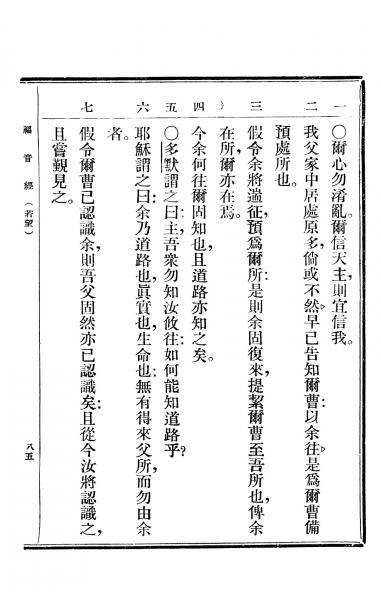 一　○爾心勿淆亂。爾信天主，則宜信我。
二　我父家中居處原多，倘或不然，早已告知爾曹：以余往，是爲爾曹備
預處所也。
三　假令余將遄征，預爲爾所：是則余固復來，提挈爾曹至吾所也，俾余
在所，爾亦在焉。
四　今余何往爾固知也，且道路亦知之矣。
五　○多默謂之曰：主，吾衆勿知汝攸往：如何能知道路乎？
六　耶穌謂之曰：余乃道路也，眞實也，生命也：無有得來父所，而勿由余
者。
七　假令爾曹已認識余，則吾父固然亦已認識矣：且從今汝將認識之，
且嘗觀見之。
福音經（若望）
八五